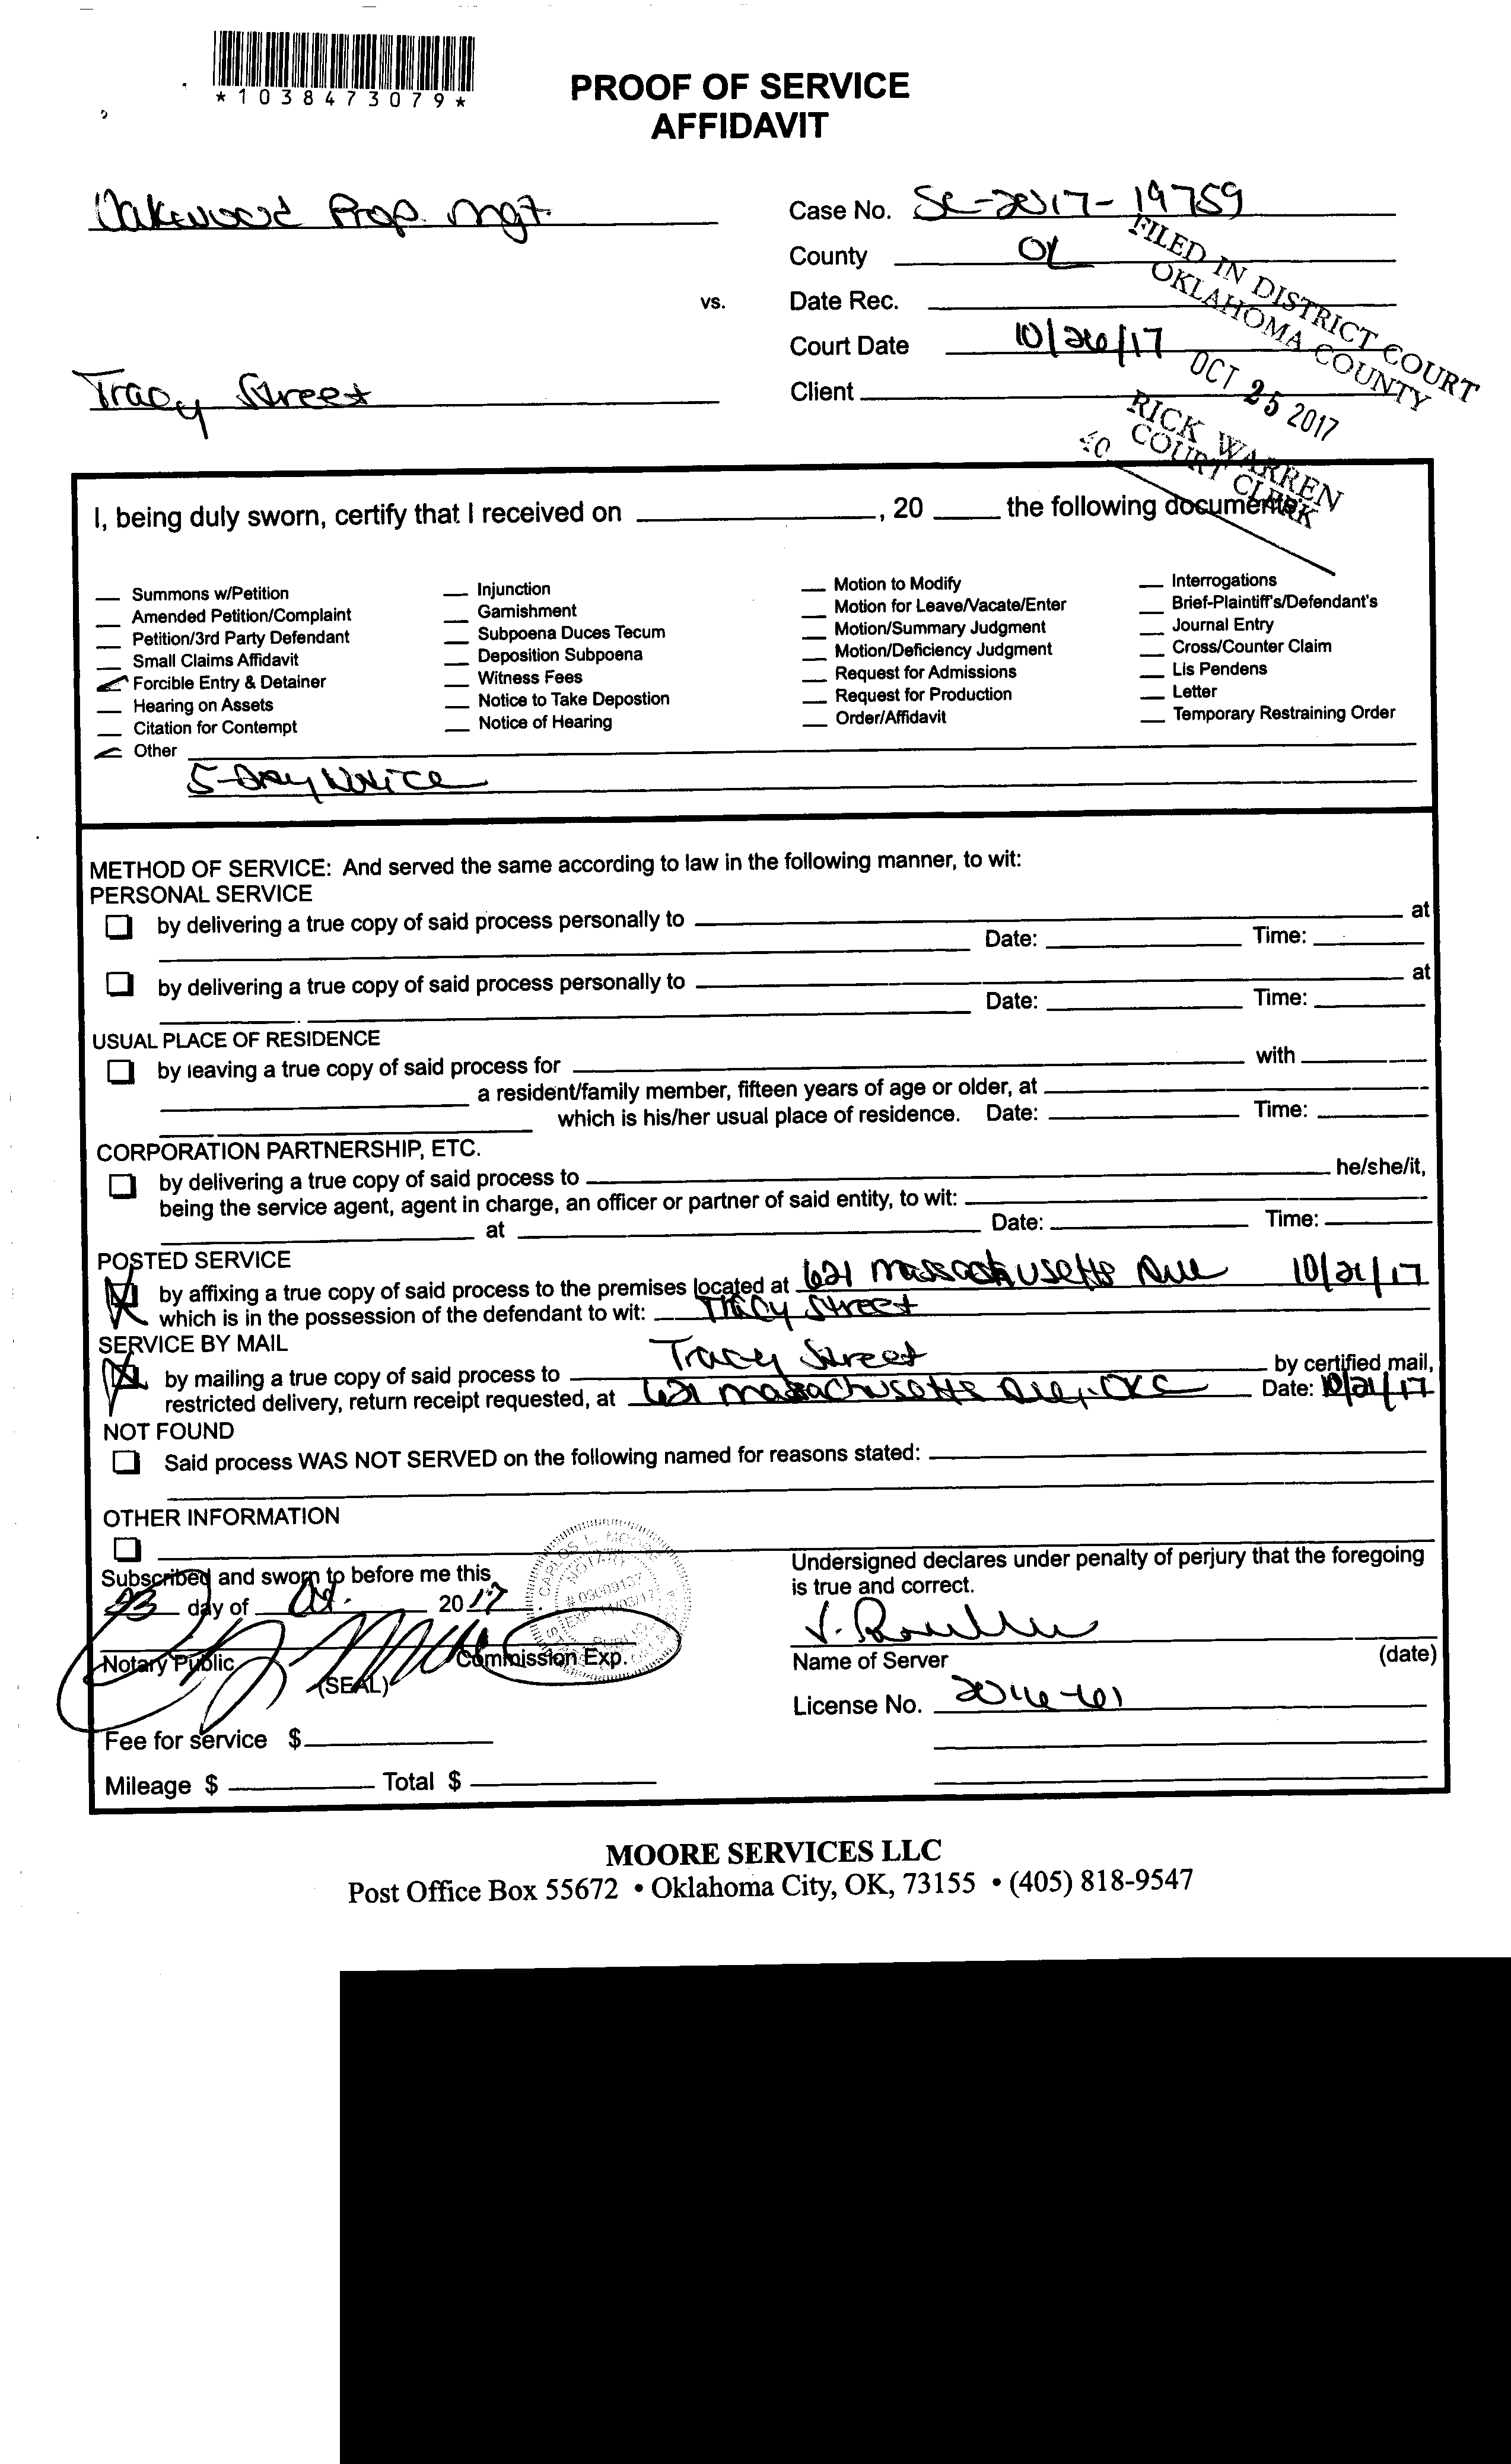 *1038473079*
PROOF OF SERVICE
AFFIDAVIT
Oakwood Prop. Mgt.
Case No. SC-2017-19759
County OK
vs.
Date Rec.
Court Date 10/26/17
Tracy Street
Client
FILED IN DISTRICT COURT
OKLAHOMA COUNTY
OCT 25 2017
RICK WARREN
COURT CLERK
40
I, being duly sworn, certify that I received on , 20 the following documents:
Summons w/Petition
Amended Petition/Complaint
Petition/3rd Party Defendant
Small Claims Affidavit
Forcible Entry & Detainer
Hearing on Assets
Citation for Contempt
Other
Injunction
Garnishment
Subpoena Duces Tecum
Deposition Subpoena
Witness Fees
Notice to Take Depostion
Notice of Hearing
Motion to Modify
Motion for Leave/Vacate/Enter
Motion/Summary Judgment
Motion/Deficiency Judgment
Request for Admissions
Request for Production
Order/Affidavit
Interrogations
Brief-Plaintiff's/Defendant's
Journal Entry
Cross/Counter Claim
Lis Pendens
Letter
Temporary Restraining Order
5-Day Notice
METHOD OF SERVICE: And served the same according to law in the following manner, to wit:
PERSONAL SERVICE
by delivering a true copy of said process personally to at
Date: Time:
by delivering a true copy of said process personally to at
Date: Time:
USUAL PLACE OF RESIDENCE
by leaving a true copy of said process for with
a resident/family member, fifteen years of age or older, at
which is his/her usual place of residence. Date: Time:
CORPORATION PARTNERSHIP, ETC.
by delivering a true copy of said process to he/she/it,
being the service agent, agent in charge, an officer or partner of said entity, to wit:
at Date: Time:
POSTED SERVICE
by affixing a true copy of said process to the premises located at 621 Massachusetts Ave 10/21/17
which is in the possession of the defendant to wit: Tracy Street
SERVICE BY MAIL
by mailing a true copy of said process to Tracy Street by certified mail,
restricted delivery, return receipt requested, at 621 Massachusetts Ave, OKC Date: 10/21/17
NOT FOUND
Said process WAS NOT SERVED on the following named for reasons stated:
OTHER INFORMATION
Subscribed and sworn to before me this
23 day of Oct. 2017
CARLOS L. MOORE
NOTARY
# 09009137
EXP. 11/03/17
PUBLIC
Notary Public
(SEAL)
Commission Exp.
Fee for service $
Mileage $ Total $
Undersigned declares under penalty of perjury that the foregoing
is true and correct.
Name of Server (date)
License No. 2016-61
MOORE SERVICES LLC
Post Office Box 55672 • Oklahoma City, OK, 73155 • (405) 818-9547